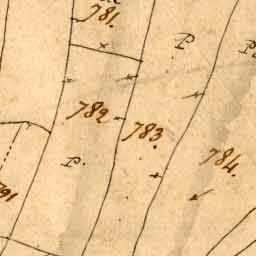 781.
P
782
783.
784.
P.
791